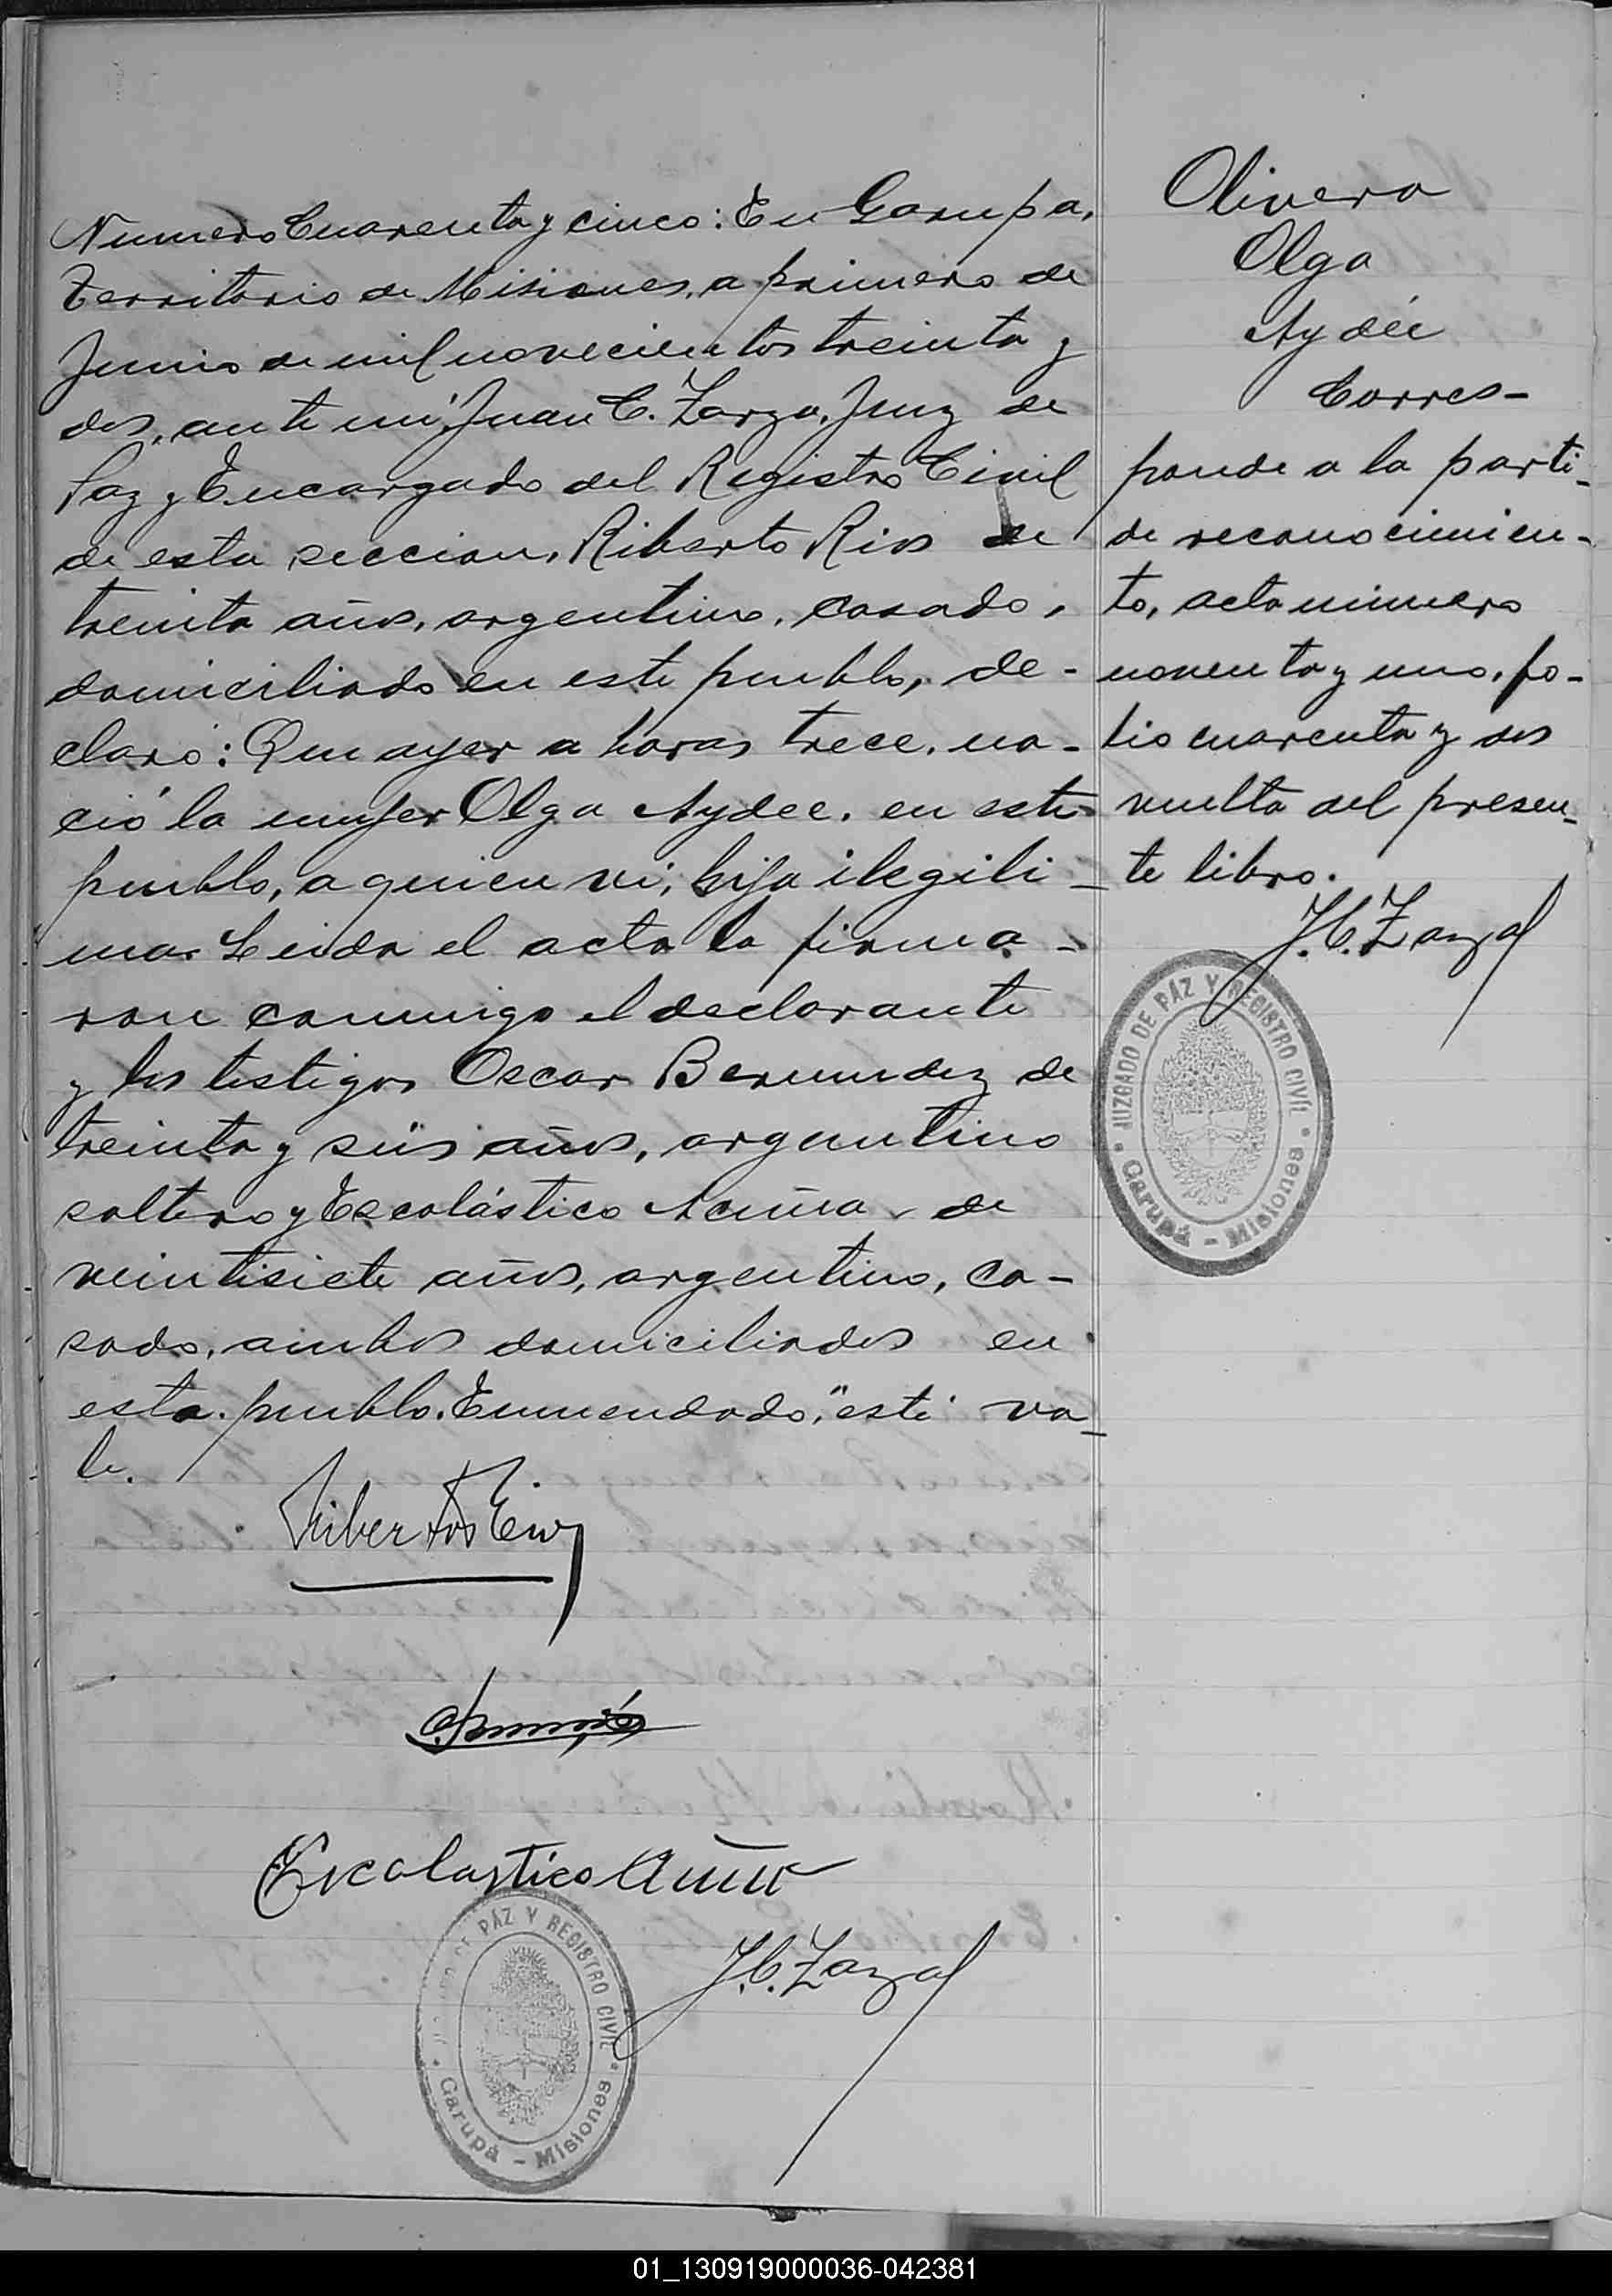 Numero Cuarenta y cinco: En Garupa,
Territorio de Misiones, a primero de
Junio de mil novecientos treinta y
dos, ante mi, Juan C. Zarza, Juez de
Paz y Encargado del Registro Civil
de esta seccion, Riberto Rios de
treinta años, argentino, casado,
domiciliado en este pueblo, de-
claró: Que ayer a horas trece, na-
ció la mujer Olga Aydee, en este
pueblo, a quien vi, hija ilegiti-
ma. Leida el acta la firma-
ron conmigo el declarante
y los testigos Oscar Bermudez de
treinta y seis años, argentino
soltero y Escolástico Acuña, de
veintisiete años, argentino, ca-
sado, ambos domiciliados en
esta pueblo. Enmendado: "este" va-
le.
Riberto Rios
Escolastico Acuña
J.C. Zarza
JUZGADO DE PÁZ Y REGISTRO CIVÍL
Garupá - Misiones
Olivera
Olga
Aydée
Corres-
ponde a la parti-
de reconocimien-
to, acta numero
noventa y uno, fo-
lio cuarenta y dos
vuelta del presen-
te libro.
J.C. Zarza
JUZGADO DE PÁZ Y REGISTRO CIVÍL
Garupá - Misiones
01_130919000036-042381